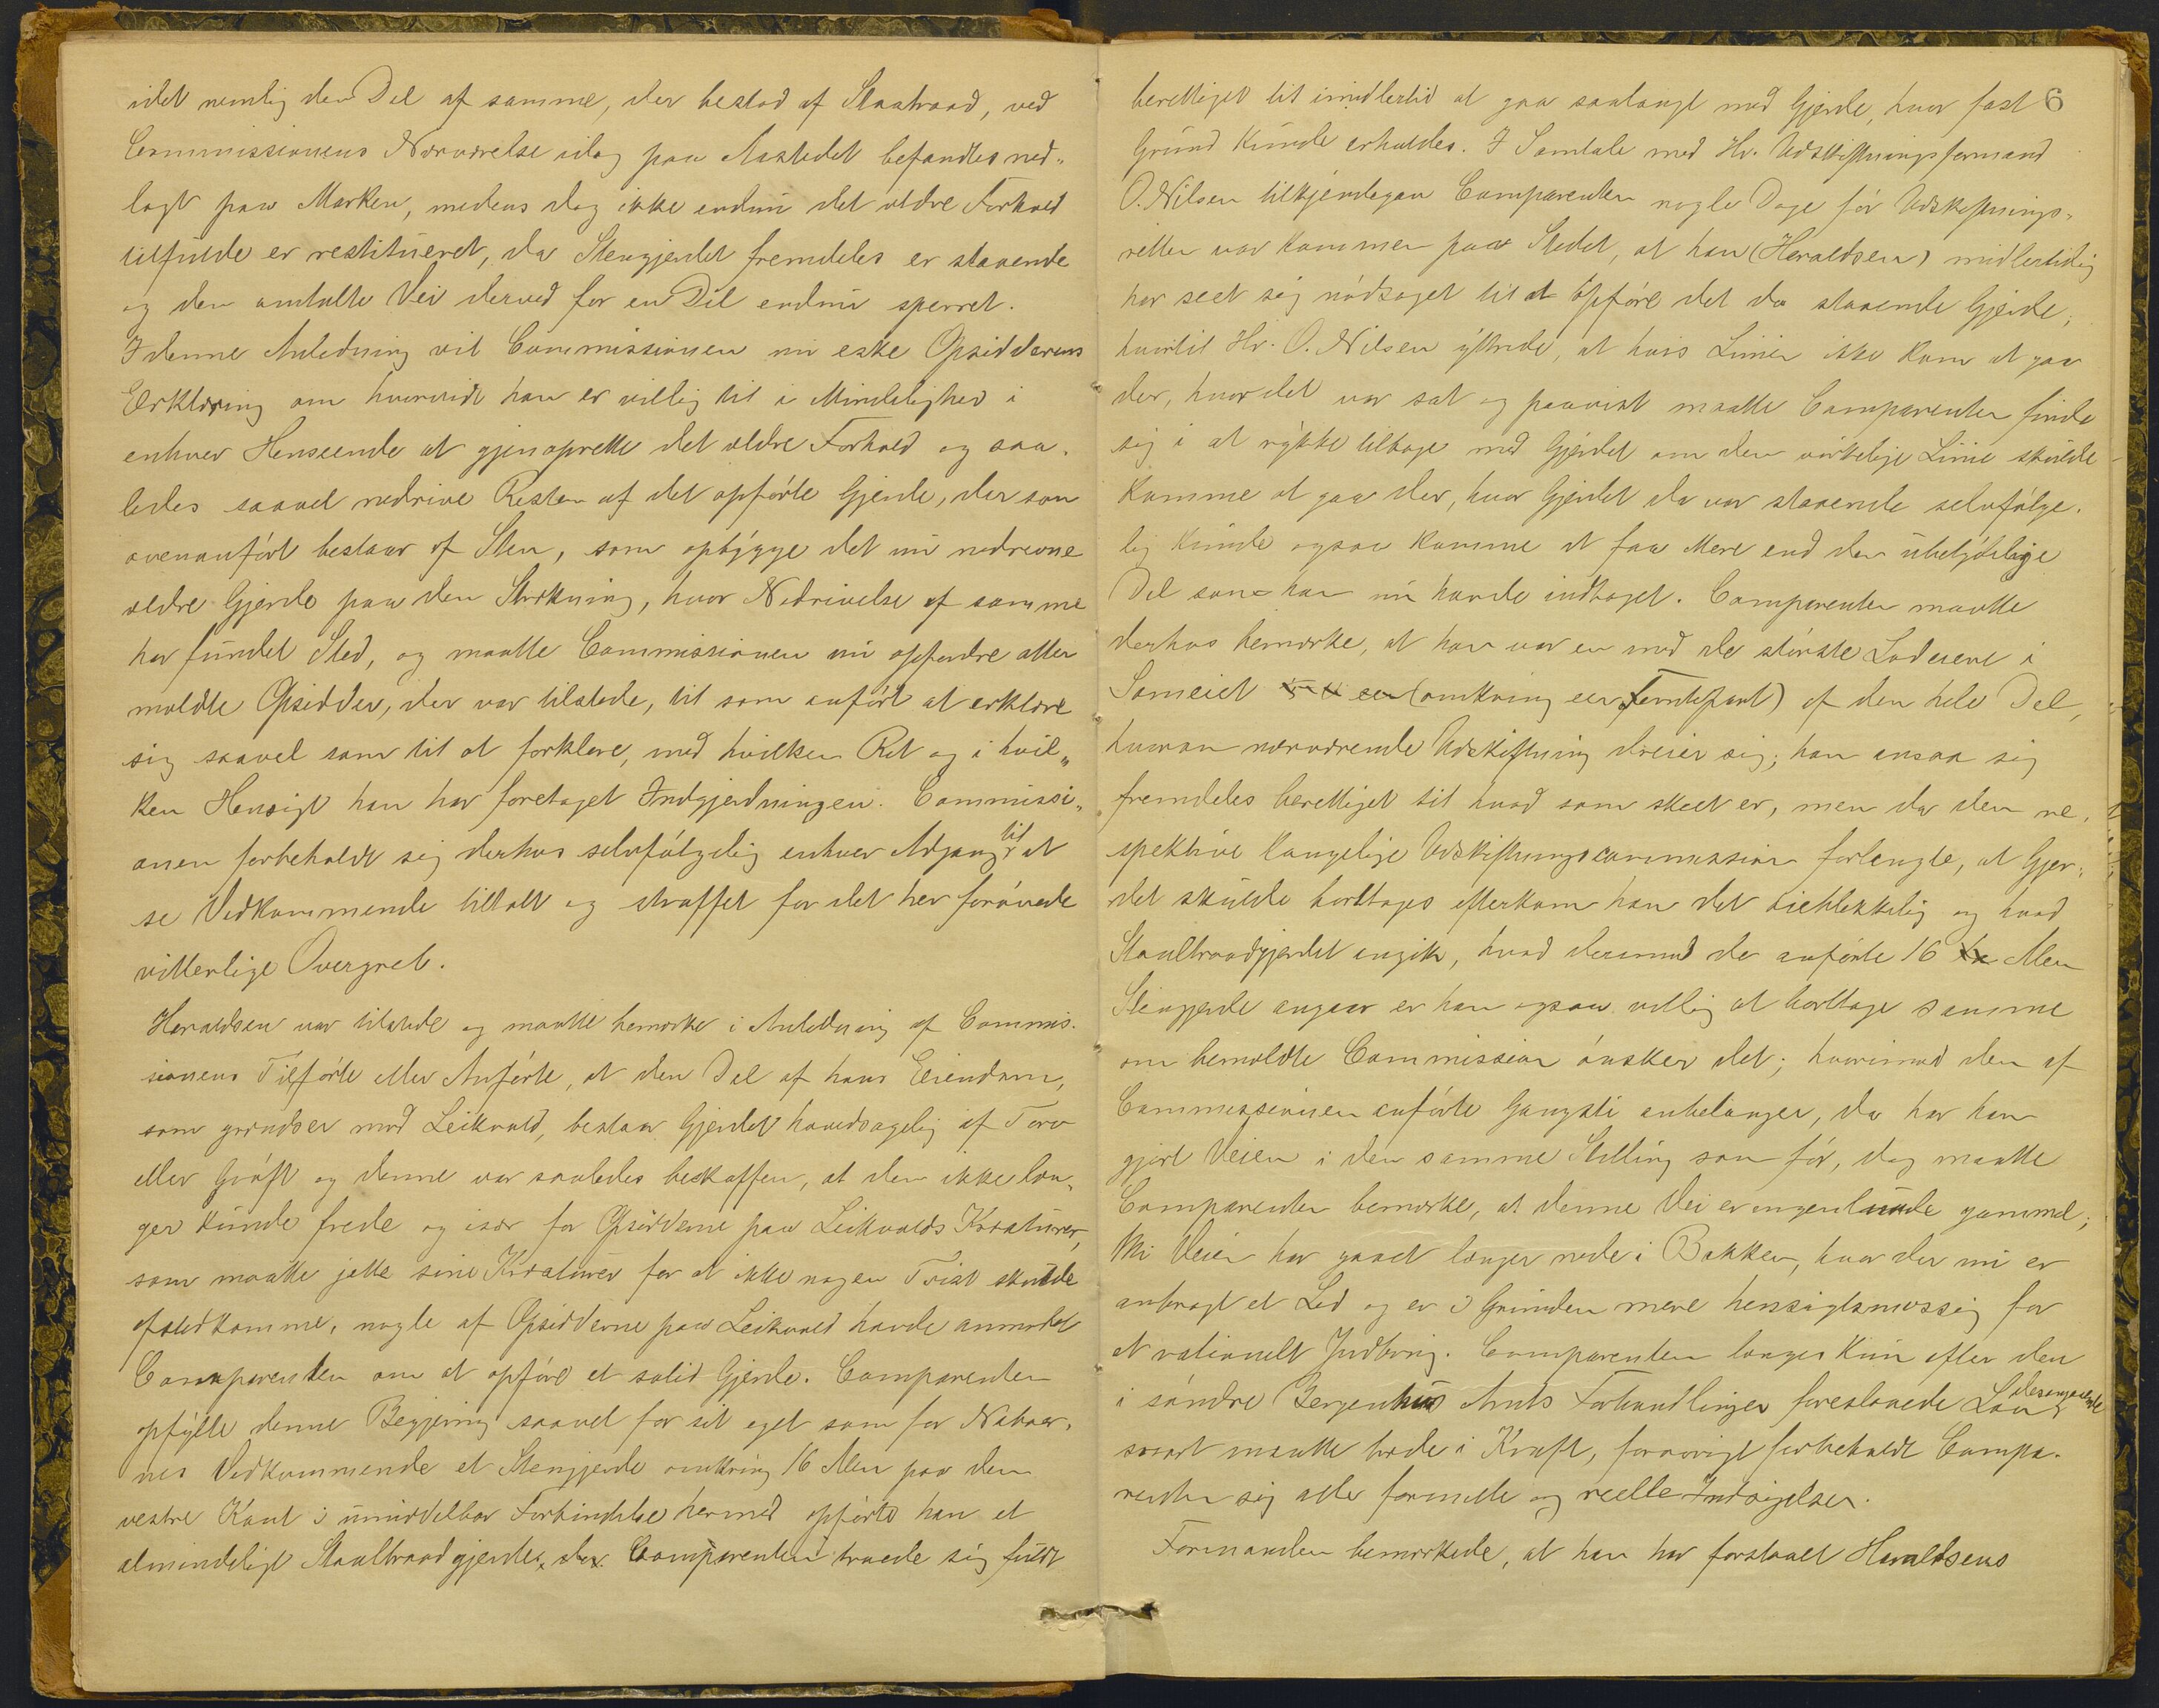 idet nemlig den Del af samme, der bestod af Staaltraad, ved
Commissionens Nærværelse idag paa Aastedet befandtes ned-
lagt paa Marken, medens dog ikke endnu det ældre Forhold
tilfulde er restitueret, da Stengjerdet fremdeles er staaende
og den omtalte Vei derved for en Del endnu sperret.
I denne Anledning vil Commissionen nu eske Opsidderens
Erklæring om hvorvidt han er villig til i Mindelighed i
enhver Henseende at gjenoprette det ældre Forhold og saa-
ledes saavel nedrive Resten af det opførte Gjerde, der som
ovenanført bestaar af Sten, som opbygge det nu nedrevne
ældre Gjerde paa den Strækning, hvor Nedrivelse af samme
har fundet Sted, og maatte Commissionen nu opfordre atter
meldte Opsidder, der var tilstede, til som anført at erklære
sig saavel som til at forklare, med hvilken Ret og i hvil-
ken Hensigt han har foretaget Indgjerdningen. Commissi-
onen forbeholdt sig derhos selvfølgelig enhver Adgang til at
se Vedkommende tiltalt og straffet for det her forøvede
vitterlige Overgreb.
Haraldsen var tilstede og maatte bemærke i Anledning af Commis-
sionens Tilførte eller Anførte, at den Del af hans Eiendom,
som grændser mod Leikvold, bestaar Gjerdet hovedsagelig af Torv
eller Grøft og denne var saaledes beskaffen, at den ikke læn-
ger kunde frede og især for Opsidderne paa Leikvolds Kreaturer,
som maatte jette sine Kreaturer for at ikke nogen Tvist skulde
afstedkomme, nogle af Opsidderne paa Leikvold havde anmodet
Comparenten om at opføre et solid Gjerde. Comparenten
opfylte denne Begjering saavel for sit eget som for Naboer-
nes Vedkommende et Stengjerde omkring 16 Alen paa den
vestre Kant i umiddelbar Forbindelse hermed opførte han et
almindeligt Staaltraadgjerde, da Comparenten troede sig fuldt
6
berettiget til imidlertid at gaa saalangt med Gjerde, hvor fast
Grund kunde erholdes. I Samtale med Hr. Udskiftningsformand
O. Nilsen tilkjendegav Comparenten nogle Dage før Udskiftnings-
retten var kommen paa Stedet, at han (Haraldsen) midlertidig
har seet sig nødsaget til at opføre det da staaende Gjerde,
hvortil Hr. O. Nilsen yttrede, at hvis Linien ikke kom at gaa
der, hvor det var sat og paavist maatte Comparenten finde
sig i at rykke tilbage med Gjerdet om den virkelige Linie skulde
komme at gaa der, hvor Gjerdet da var staaende selvfølge-
lig kunde ogsaa komme at faa Mere end den ubetydelige
Del som han nu havde indtaget. Comparenten maatte
derhos bemærke, at han var en med de største Lodeiere i
Sameiet (omkring een Femtepart) af den hele Del,
hvorom nærværende Udskiftning dreier sig; han ansaa sig
fremdeles berettiget til hvad som skeet er, men da den re-
spektive kongelige Udskiftningscommission forlangte, at Gjer-
det skulde borttages efterkom han det øieblikkelig og hvad
Staaltraadgjerdet angik, hvad derimod de anførte 16 Alen
Stengjerde angaar er han ogsaa villig at borttage samme
om bemeldte Commission ønsker det; hvorimod den af
Commissionen anførte Gangsti anbelanger, da har han
gjort Veien i den samme Stilling som før, dog maatte
Comparenten bemærke, at denne Vei er ingenlunde gammel;
thi Veien har gaaet længer nede i Bakken, hvor der nu er
anbragt et Led og er i Grunden mere hensigtsmæssig for
et rationelt Jndbrug. Comparenten længes kun efter den
i søndre Bergenhus Amts Forhandlinger foreslaaede Lov desangaaende
snart maatte træde i Kraft, forøvrigt forbeholdt Compa-
renten sig alle formelle og reelle Indsigelser.
Formanden bemærkede, at han har forstaaet Haraldsens